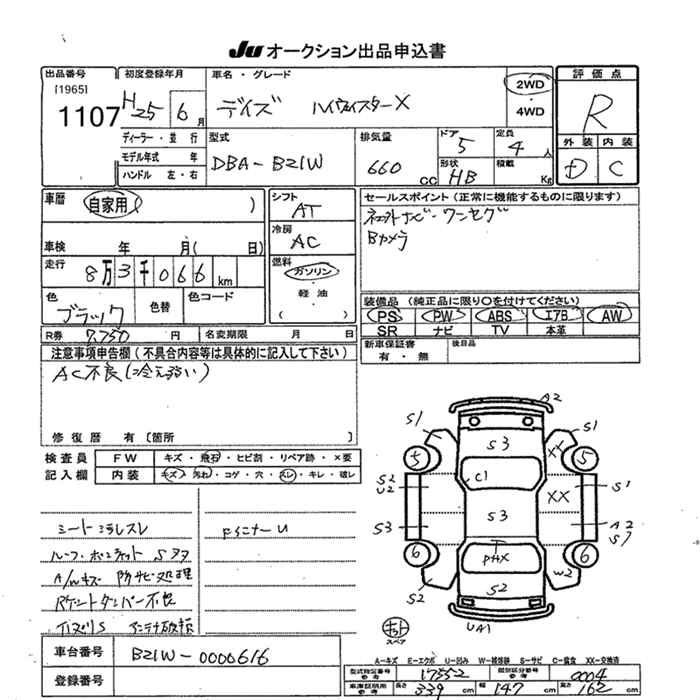 JU オークション出品申込書
出品番号 初度登録年月 車名・グレード 2WD 評価点
[1965] 1107 H25 6月 デイズ ハイウェイスターX 4WD R
ディーラー・並行 型式 排気量 ドア 定員 外装 内装
モデル年式 年 DBA-B21W 660cc 5 4人 D C
ハンドル 左・右 形状 HB 積載 Kg
車歴 自家用 ( ) シフト AT セールスポイント (正常に機能するものに限ります)
冷房 AC ワンセグ
車検 年 月( 日) Bカメラ
走行 8万3千066km 燃料 ガソリン・軽油・( )
色 ブラック 色替 色コード 装備品 (純正品に限り〇を付けてください)
PS PW ABS エアB AW
R券 7,750円 名変期限 月 日 SR ナビ TV 本革
注意事項申告欄 (不具合内容等は具体的に記入して下さい) 新車保証書 有・無 後日品
AC不良(冷え弱い)
修復歴 有 [箇所 ]
検査員 FW キズ・飛石・ヒビ割・リペア跡・×要
記入欄 内装 キズ・汚れ・コゲ・穴・スレ・キレ・破レ
シート シミ スレ
ルーフ・ボンネット S
A/Wキズ 防サビ処理
ダンパー不良
アンテナ破損
A2
S1 S3 XX S1
5 5
S2 U2 C1 XX S1
S3 S3 A2 S7
6 PHX 6
S2 S2 W2
UA1
スペア
A-キズ E-エクボ U-凹み W-補修跡 S-サビ C-腐食 XX-交換済
車台番号 B21W-0000616 型式指定番号 参考 17552 類別区分番号 参考 0004
登録番号 車庫証明用 参考 長さ 339cm 幅 147cm 高さ 162cm